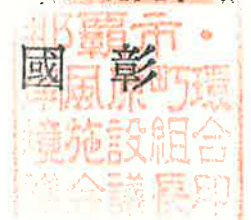 國 彰
那覇市・
南風原町環
境施設組合
議会議長印